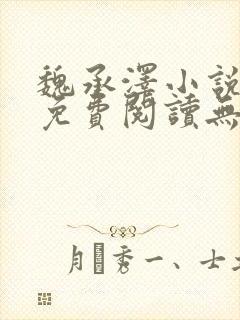 魏承澤小說
免費閱讀無
月秀一、士